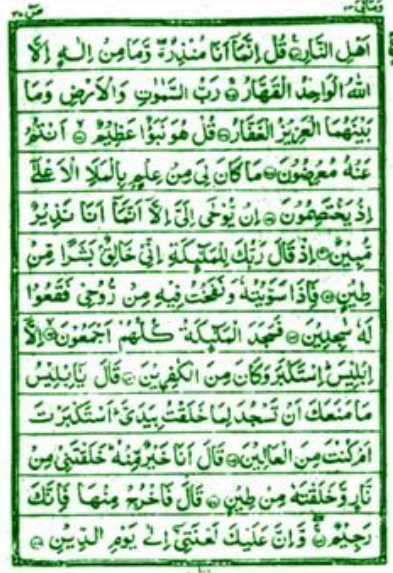 وَمَالِيَ ٢٣
صٓ ٣٨
اَهْلِ النَّارِ قُلْ اِنَّمَآ اَنَا مُنْذِرٌ وَّمَا مِنْ اِلٰهٍ اِلَّا
اللّٰهُ الْوَاحِدُ الْقَهَّارُ رَبُّ السَّمٰوٰتِ وَالْاَرْضِ وَمَا
بَيْنَهُمَا الْعَزِيْزُ الْغَفَّارُ قُلْ هُوَ نَبَؤٌا عَظِيْمٌ اَنْتُمْ
عَنْهُ مُعْرِضُوْنَ مَا كَانَ لِيَ مِنْ عِلْمٍ بِالْمَلَاِ الْاَعْلٰٓى
اِذْ يَخْتَصِمُوْنَ اِنْ يُّوْحٰٓى اِلَيَّ اِلَّآ اَنَّمَآ اَنَا نَذِيْرٌ
مُّبِيْنٌ اِذْ قَالَ رَبُّكَ لِلْمَلٰٓئِكَةِ اِنِّيْ خَالِقٌ بَشَرًا مِّنْ
طِيْنٍ فَاِذَا سَوَّيْتُهٗ وَنَفَخْتُ فِيْهِ مِنْ رُّوْحِيْ فَقَعُوْا
لَهٗ سٰجِدِيْنَ فَسَجَدَ الْمَلٰٓئِكَةُ كُلُّهُمْ اَجْمَعُوْنَ اِلَّآ
اِبْلِيْسَ اِسْتَكْبَرَ وَكَانَ مِنَ الْكٰفِرِيْنَ قَالَ يٰٓاِبْلِيْسُ
مَا مَنَعَكَ اَنْ تَسْجُدَ لِمَا خَلَقْتُ بِيَدَيَّ اَسْتَكْبَرْتَ
اَمْ كُنْتَ مِنَ الْعَالِيْنَ قَالَ اَنَا خَيْرٌ مِّنْهُ خَلَقْتَنِيْ مِنْ
نَّارٍ وَّخَلَقْتَهٗ مِنْ طِيْنٍ قَالَ فَاخْرُجْ مِنْهَا فَاِنَّكَ
رَجِيْمٌ وَّاِنَّ عَلَيْكَ لَعْنَتِيْٓ اِلٰى يَوْمِ الدِّيْنِ